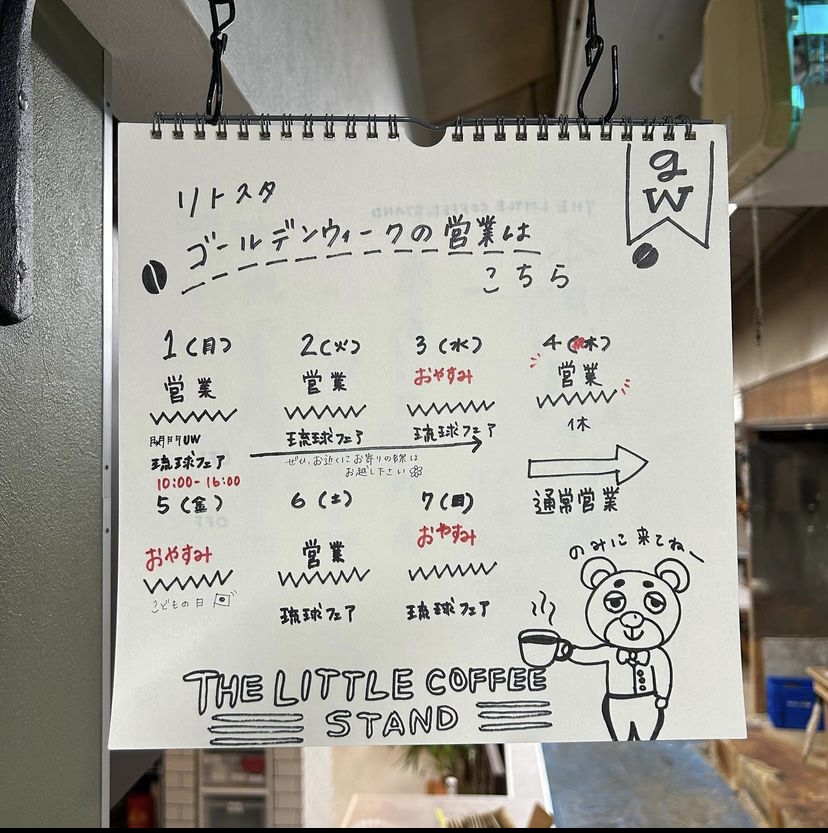 gw
リトスタ
ゴールデンウィークの営業は
こちら
1(月) 2(火) 3(水) 4(木)
営業 営業 おやすみ 営業
琉球フェア 琉球フェア 休
琉球フェア ぜひ、お近くにお寄りの際は
10:00-16:00 お越し下さい
5(金) 6(土) 7(日) 通常営業
おやすみ 営業 おやすみ
こどもの日 琉球フェア 琉球フェア
のみに来てねー
THE LITTLE COFFEE
STAND